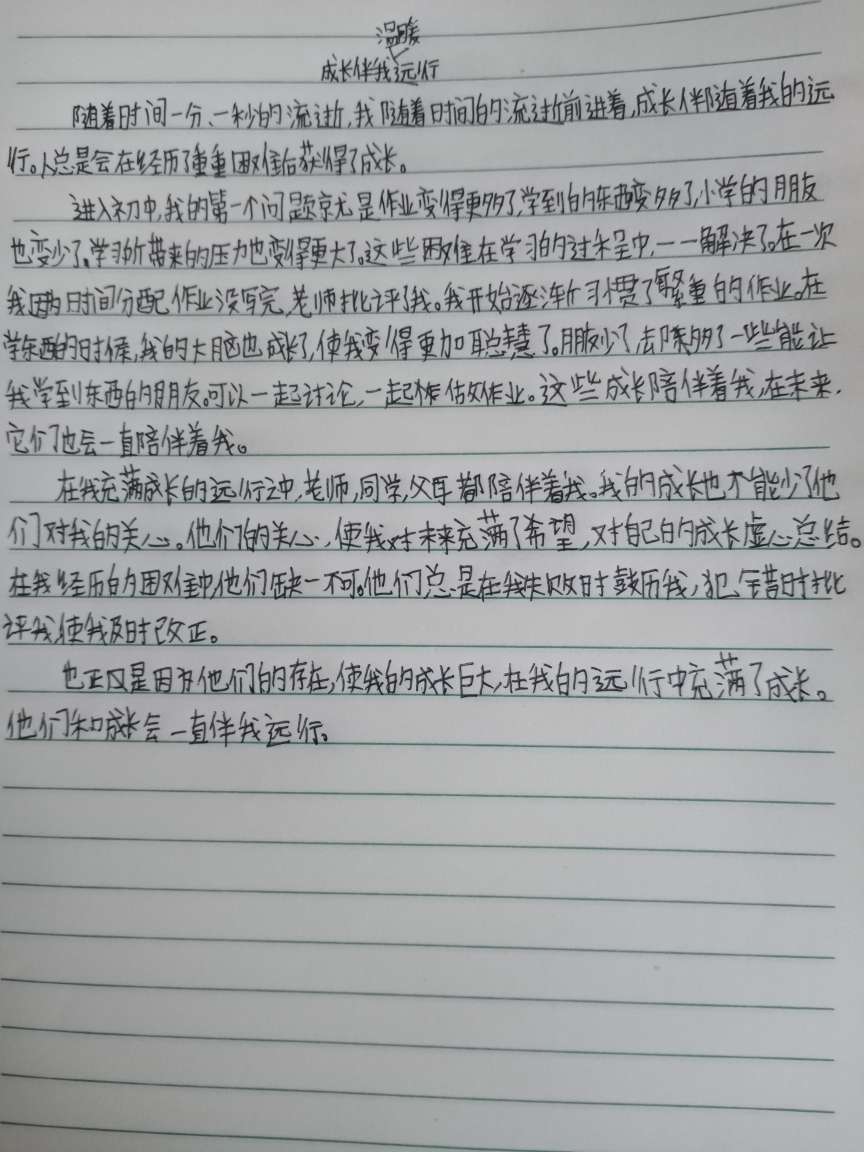 温暖
成长伴我远行
随着时间一分、一秒的流逝,我随着时间的流逝前进着,成长伴随着我的远
行。人总是会在经历了重重困难后获得了成长。
进入初中,我的第一个问题就是作业变得更多了,学到的东西变多了,小学的朋友
也变少了。学习所带来的压力也变得更大了。这些困难在学习的过程中,一一解决了。在一次
我因为时间分配作业没写完,老师批评了我。我开始逐渐习惯了繁重的作业。在
学东西的时候,我的大脑也成长了,使我变得更加聪慧了。朋友少了,却来多了一些能让
我学到东西的朋友。可以一起讨论,一起作业。这些成长陪伴着我,在未来,
它们也会一直陪伴着我。
在我充满成长的远行之中,老师,同学,父母都陪伴着我。我的成长也不能少了他
们对我的关心。他们的关心,使我对未来充满了希望,对自己的成长虚心总结。
在我经历的困难中他们缺一不可。他们总是在我失败时鼓历我,犯错时批
评我,使我及时改正。
也正是因为他们的存在,使我的成长巨大,在我的远行中充满了成长。
他们和成长会一直伴我远行。